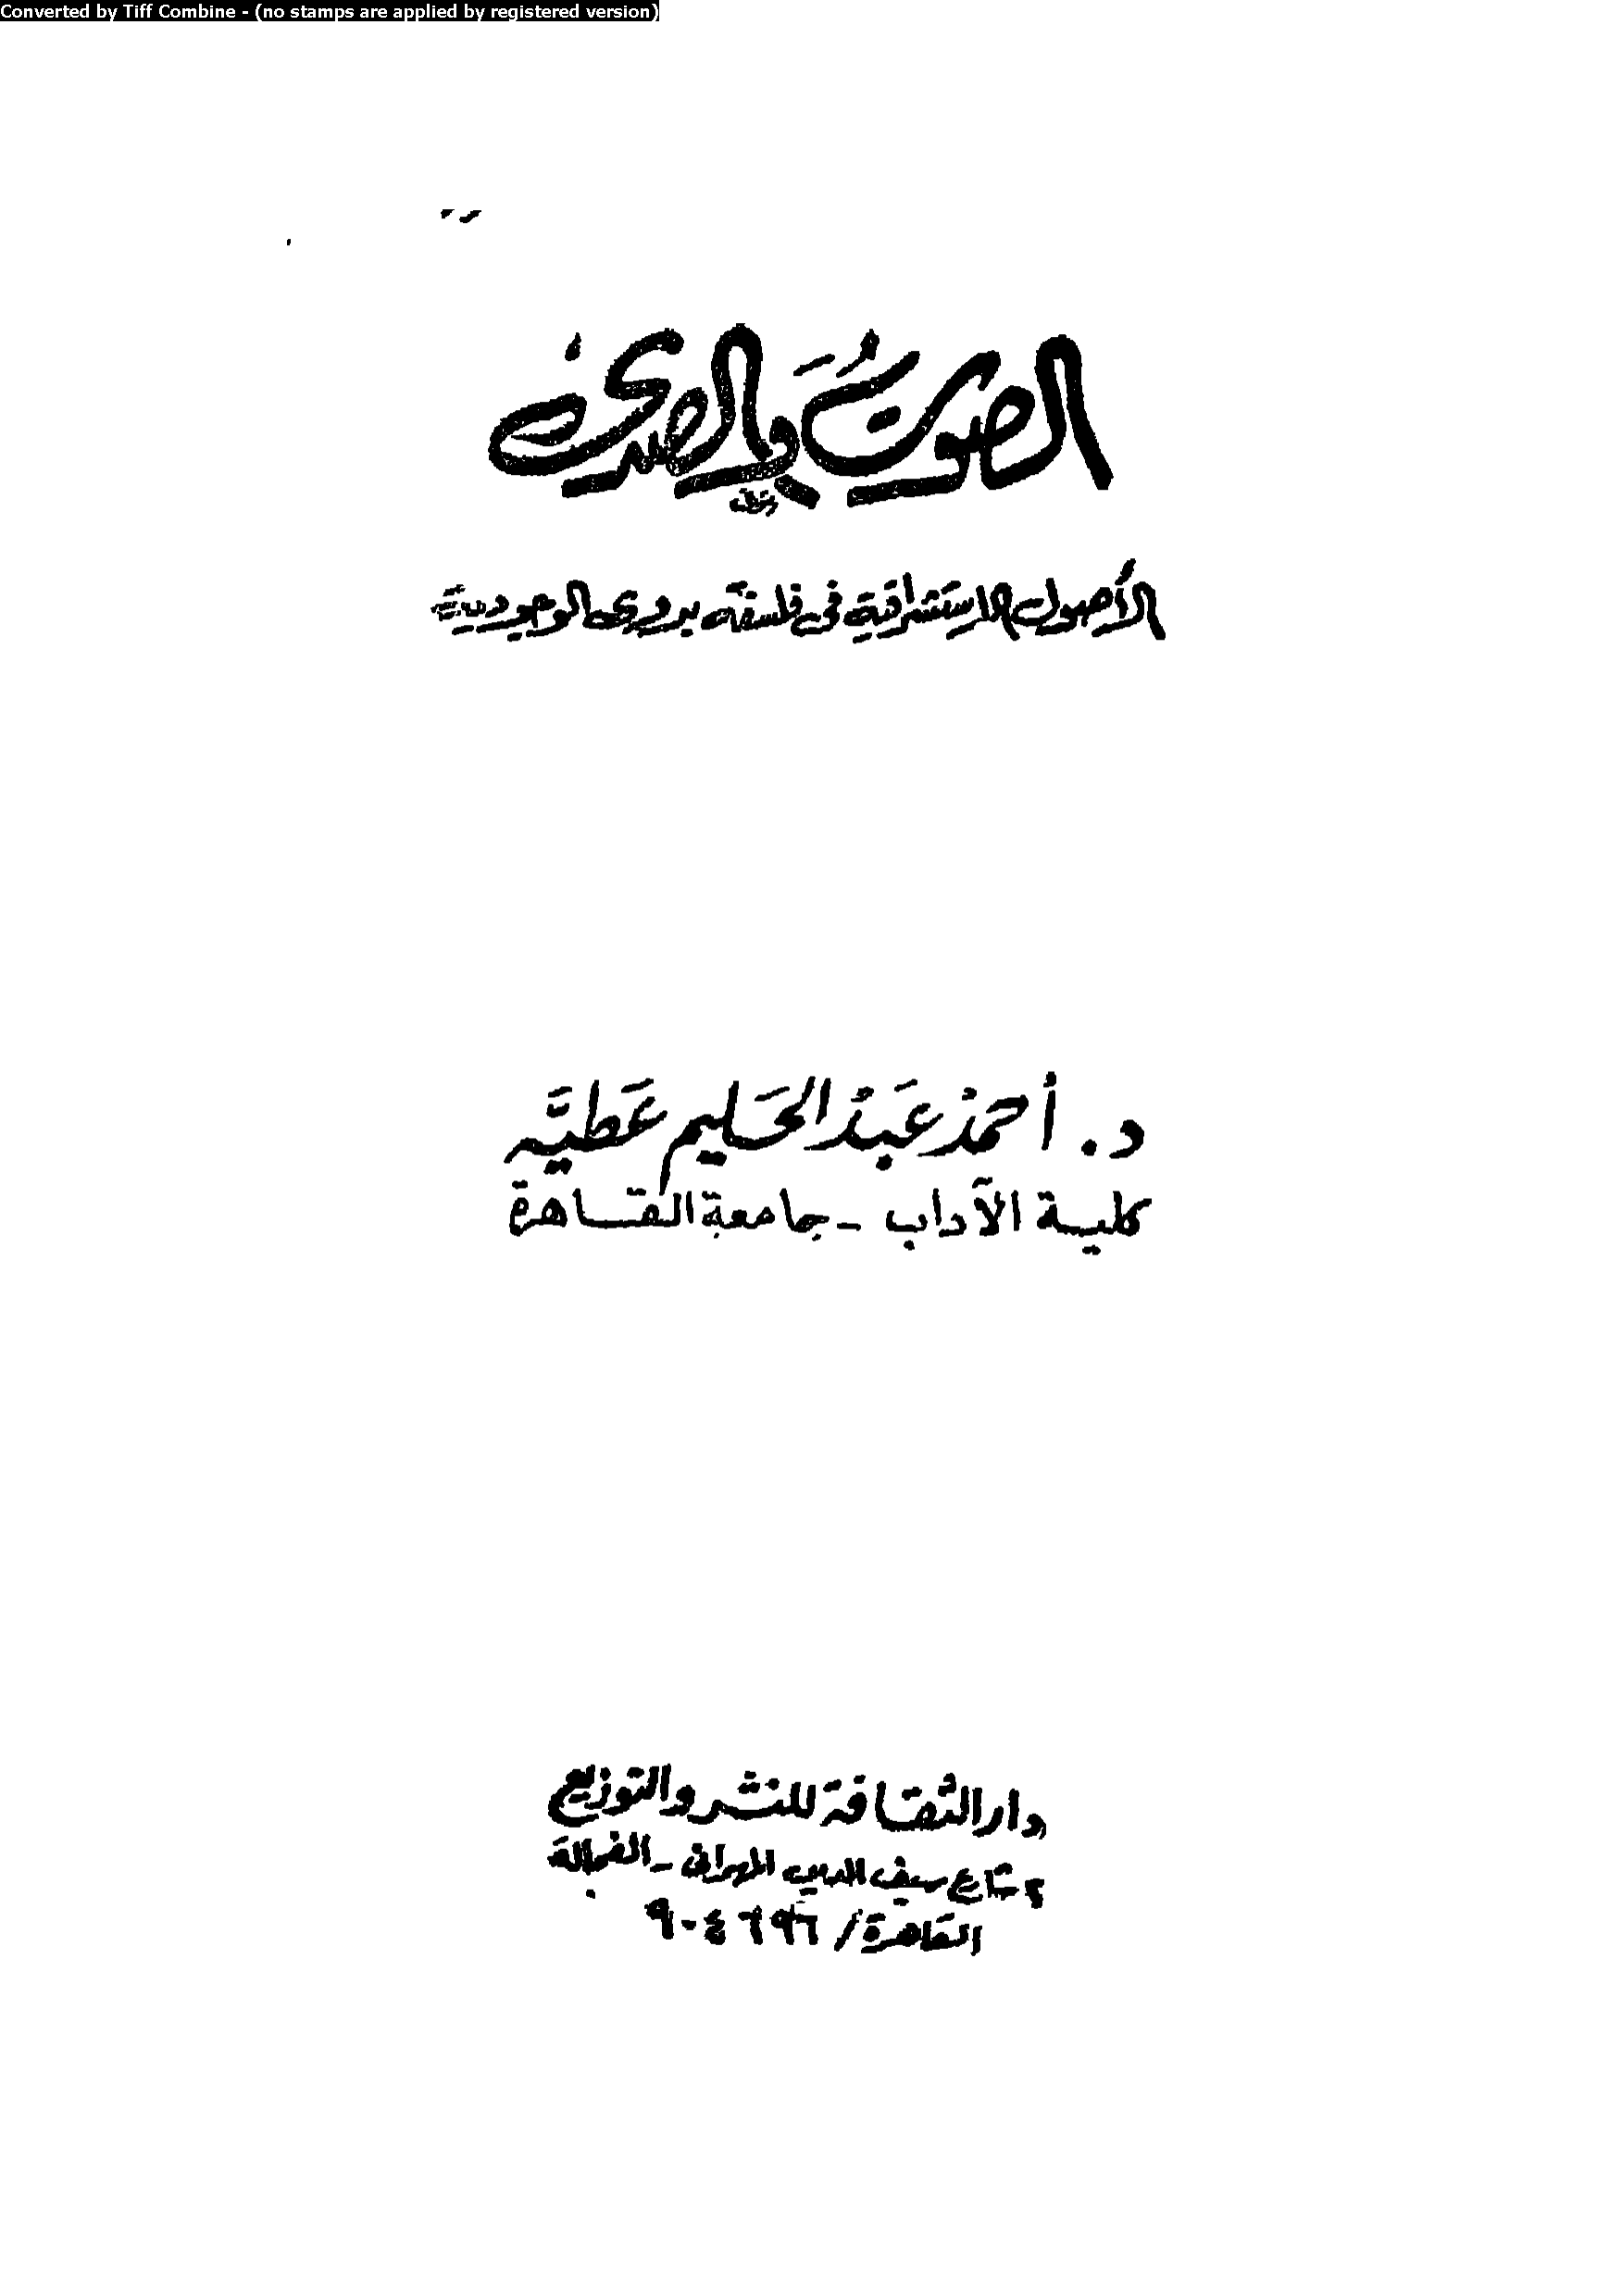 Converted by Tiff Combine - (no stamps are applied by registered version)
الصوتُ والصدى
الأصول الاستشراقية فى فلسفة بدوى الوجودية
د. أحمدْ عَبدْ الحَليم عَطيَّه
كليـة الآداب - جامعة القـاهرة
دار الثقافة للنشر والتوزيع
٢ شارع سيف الدين المهرانى - الفجالة
القاهرة / ٩٠٤٦٩٦